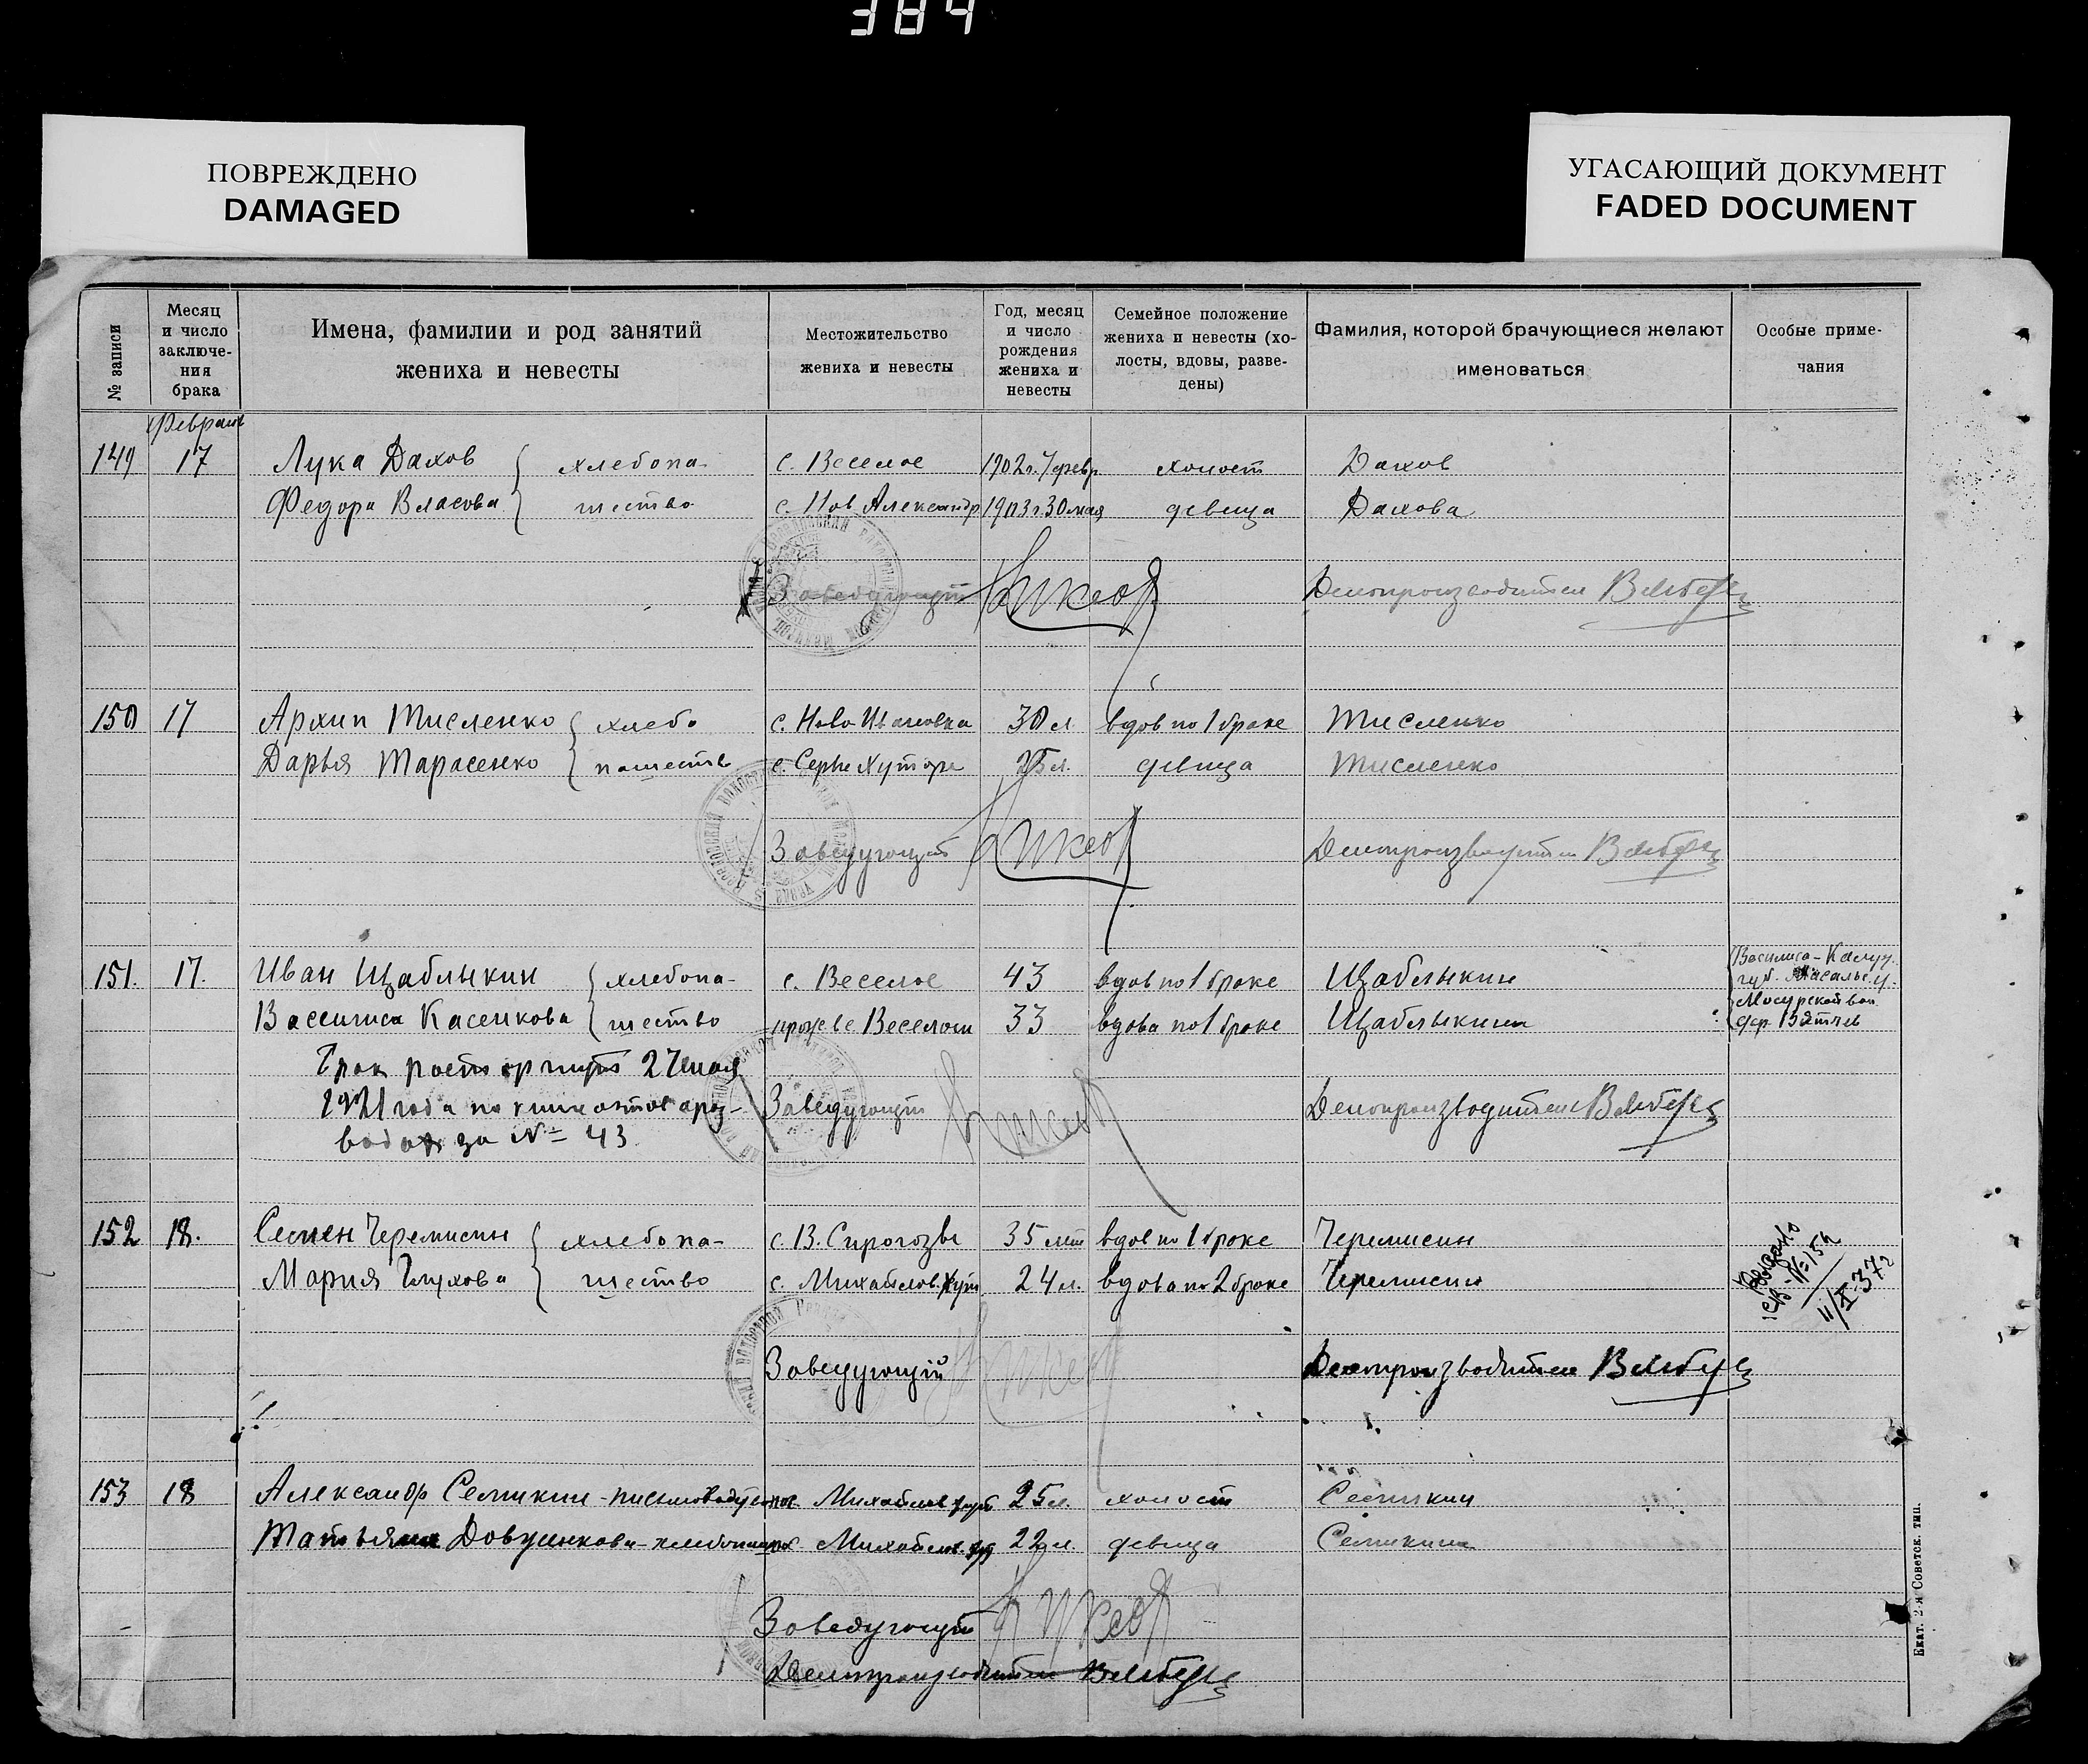 384
ПОВРЕЖДЕНО
DAMAGED
УГАСАЮЩИЙ ДОКУМЕНТ
FADED DOCUMENT
№ записи
Месяц и число заключе-ния брака
Имена, фамилии и род занятий жениха и невесты
Местожительство жениха и невесты
Год, месяц и число рождения жениха и невесты
Семейное положение жениха и невесты (хо-лосты, вдовы, разве-дены)
Фамилия, которой брачующиеся желают именоваться
Особые приме-чания
Февраль
149 17 Лука Дахов хлебопа- с. Веселое 1902 г. 7 февр. холост Дахов
Федора Власова шество с. Нов Александр 1903 г. 30 мая девица Дахова
Заведующий Делопроизводитель
150 17 Архип Тисленко хлебо с. Ново Ивановка 30 л. вдов по 1 браке Тисленко
Дарья Тарасенко пашество с. Серье Хутора 25 л. девица Тисленко
Заведующий Делопроизводитель
151. 17. Иван Щаблыкин хлебопа- с. Веселое 43 вдов по 1 браке Щаблыкин
Василиса Касенкова шество прож в с. Веселом 33 вдова по 1 браке Щаблыкина
Василиса - Калуж.
губ. Масальс. у.
Мосурской вол.
дер.
Брак расторгнут 27 мая
1921 года по книге актов о раз-
водах за № 43
Заведующий Делопроизводитель
152 18. Семен Черемисин хлебопа- с. В. Сирогозы 35 лет вдов по 1 браке Черемисин
Мария Глухова шество с. Михайлов. Хут. 24 л. вдова по 2 браке Черемисин
Выдано
св-№ 152
11/X-37 г
Заведующий Делопроизводитель
153 18 Александр Семикин - письмоводитель Михайлов хут. 25 л. холост Семикин
Татьяна - хлебопаш Михайлов. хут 22 л. девица Семикина
Заведующий
Делопроизводитель
Екат. 2-я Советск. тип.